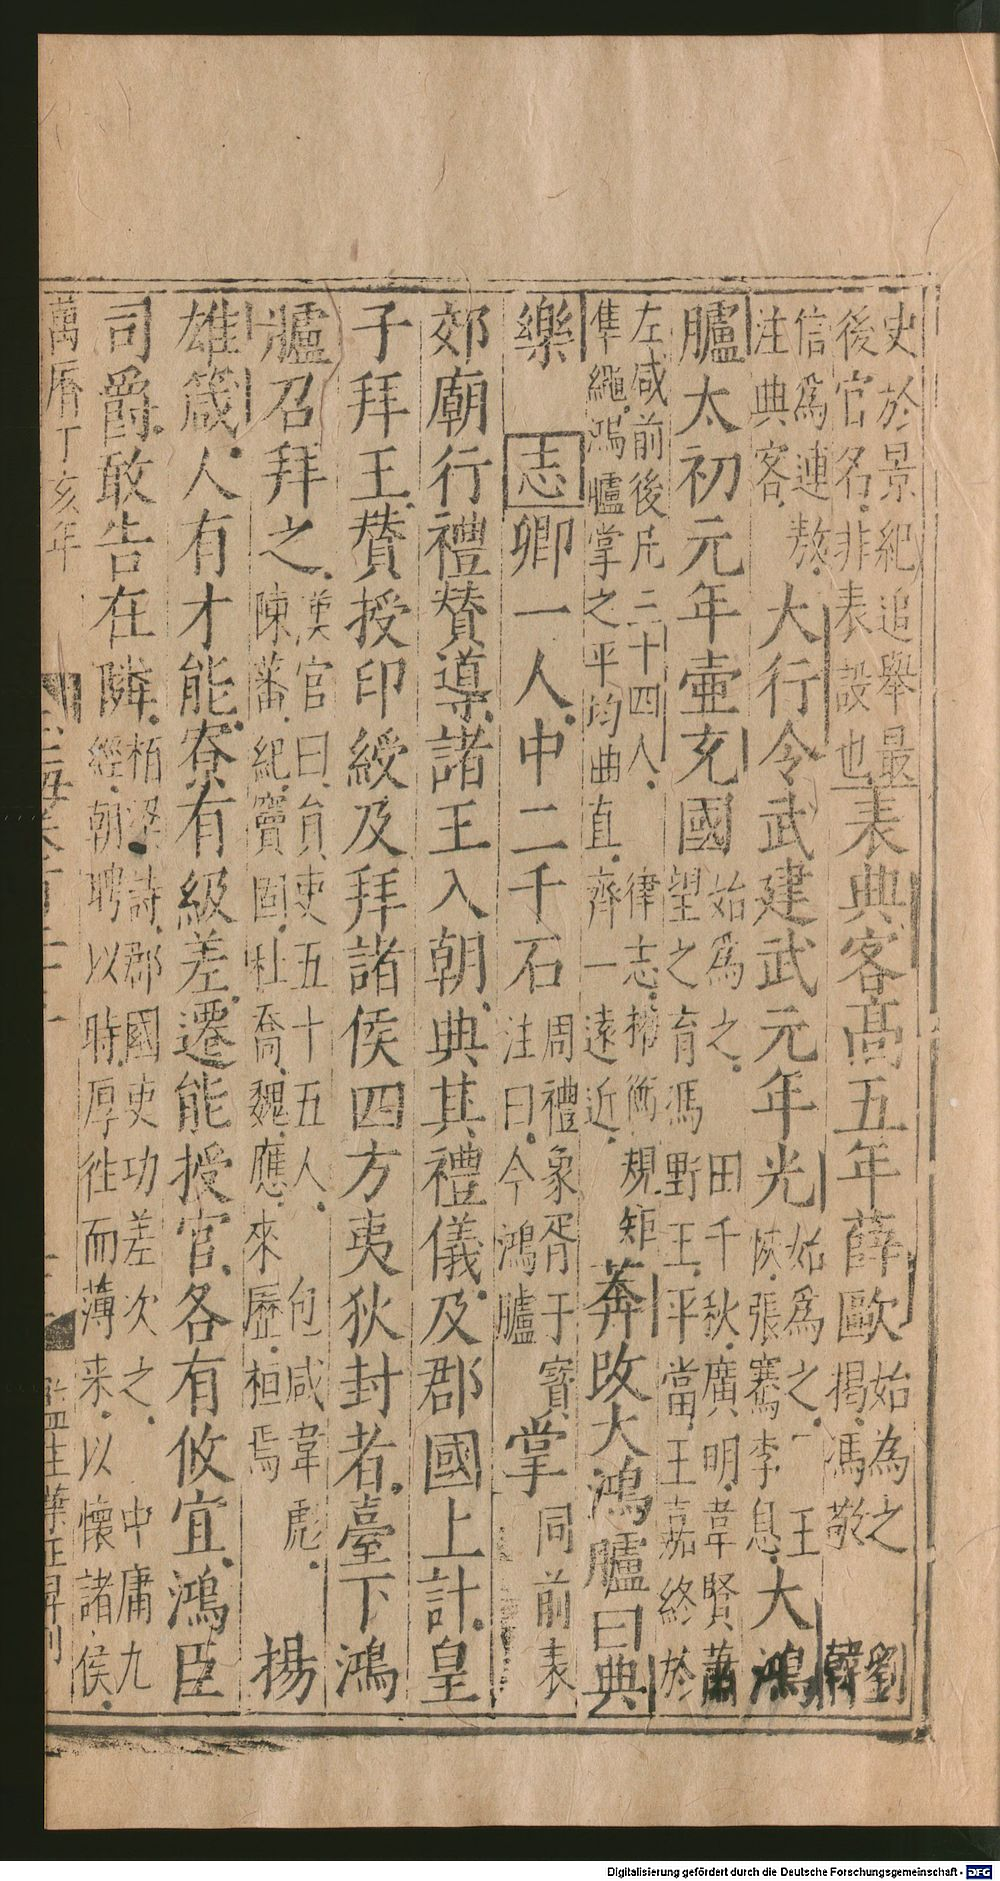 史於景紀追舉最
後官名非表設也
表典客高五年薛歐
始為之劉
揭馮敬韓
信為連敖
注典客
大行令武建武元年光
始為之王
恢張騫李息
大鴻
臚太初元年壷充國
始為之田千秋廣明韋賢蕭
望之育馮野王平當王嘉終於
左咸前後凡二十四人律志權衡規矩
隼繩鴻臚掌之平均曲直齊一遠近
莽改大鴻臚曰典
樂 志卿一人中二千石
周禮象胥干寶
注曰今鴻臚
掌
同前表
郊廟行禮賛導諸王入朝典其禮儀及郡國上計皇
子拜王賛授印綬及拜諸侯四方夷狄封者臺下鴻
臚召拜之
漢官曰員吏五十五人包咸韋彪
陳蕃紀竇固杜喬魏應來歷桓焉
揚
雄箴人有才能寮有級差遷能授官各有攸宜鴻臣
司爵敢告在隣
栢梁詩郡國吏功差次之中庸九
經朝聘以時厚徃而薄来以懷諸侯
萬曆丁亥年
玉海卷百二十
Digitalisierung gefördert durch die Deutsche Forschungsgemeinschaft - DFG